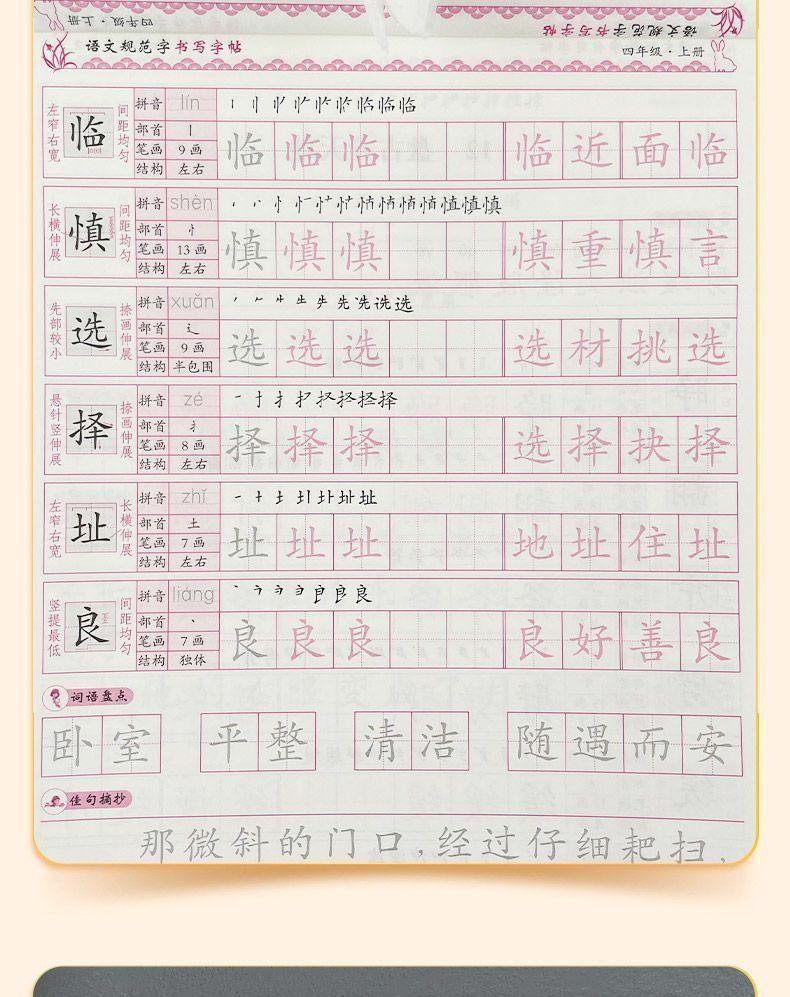 语文规范字书写字帖
四年级·上册
语文规范字书写字帖
四年级·上册
左窄右宽 临 间距均匀 拼音 lín
部首 丨
笔画 9画
结构 左右
临 临 临 临 近 面 临
长横伸展 慎 间距均匀 拼音 shèn
部首 忄
笔画 13画
结构 左右
慎 慎 慎 慎 重 慎 言
先部较小 选 捺画伸展 拼音 xuǎn
部首 辶
笔画 9画
结构 半包围
选 选 选 选 材 挑 选
悬针竖伸展 择 捺画伸展 拼音 zé
部首 扌
笔画 8画
结构 左右
择 择 择 选 择 抉 择
左窄右宽 址 长横伸展 拼音 zhǐ
部首 土
笔画 7画
结构 左右
址 址 址 地 址 住 址
竖提最低 良 间距均匀 拼音 liáng
部首 丶
笔画 7画
结构 独体
良 良 良 良 好 善 良
词语盘点
卧室 平整 清洁 随遇而安
佳句摘抄
那微斜的门口，经过仔细耙扫，